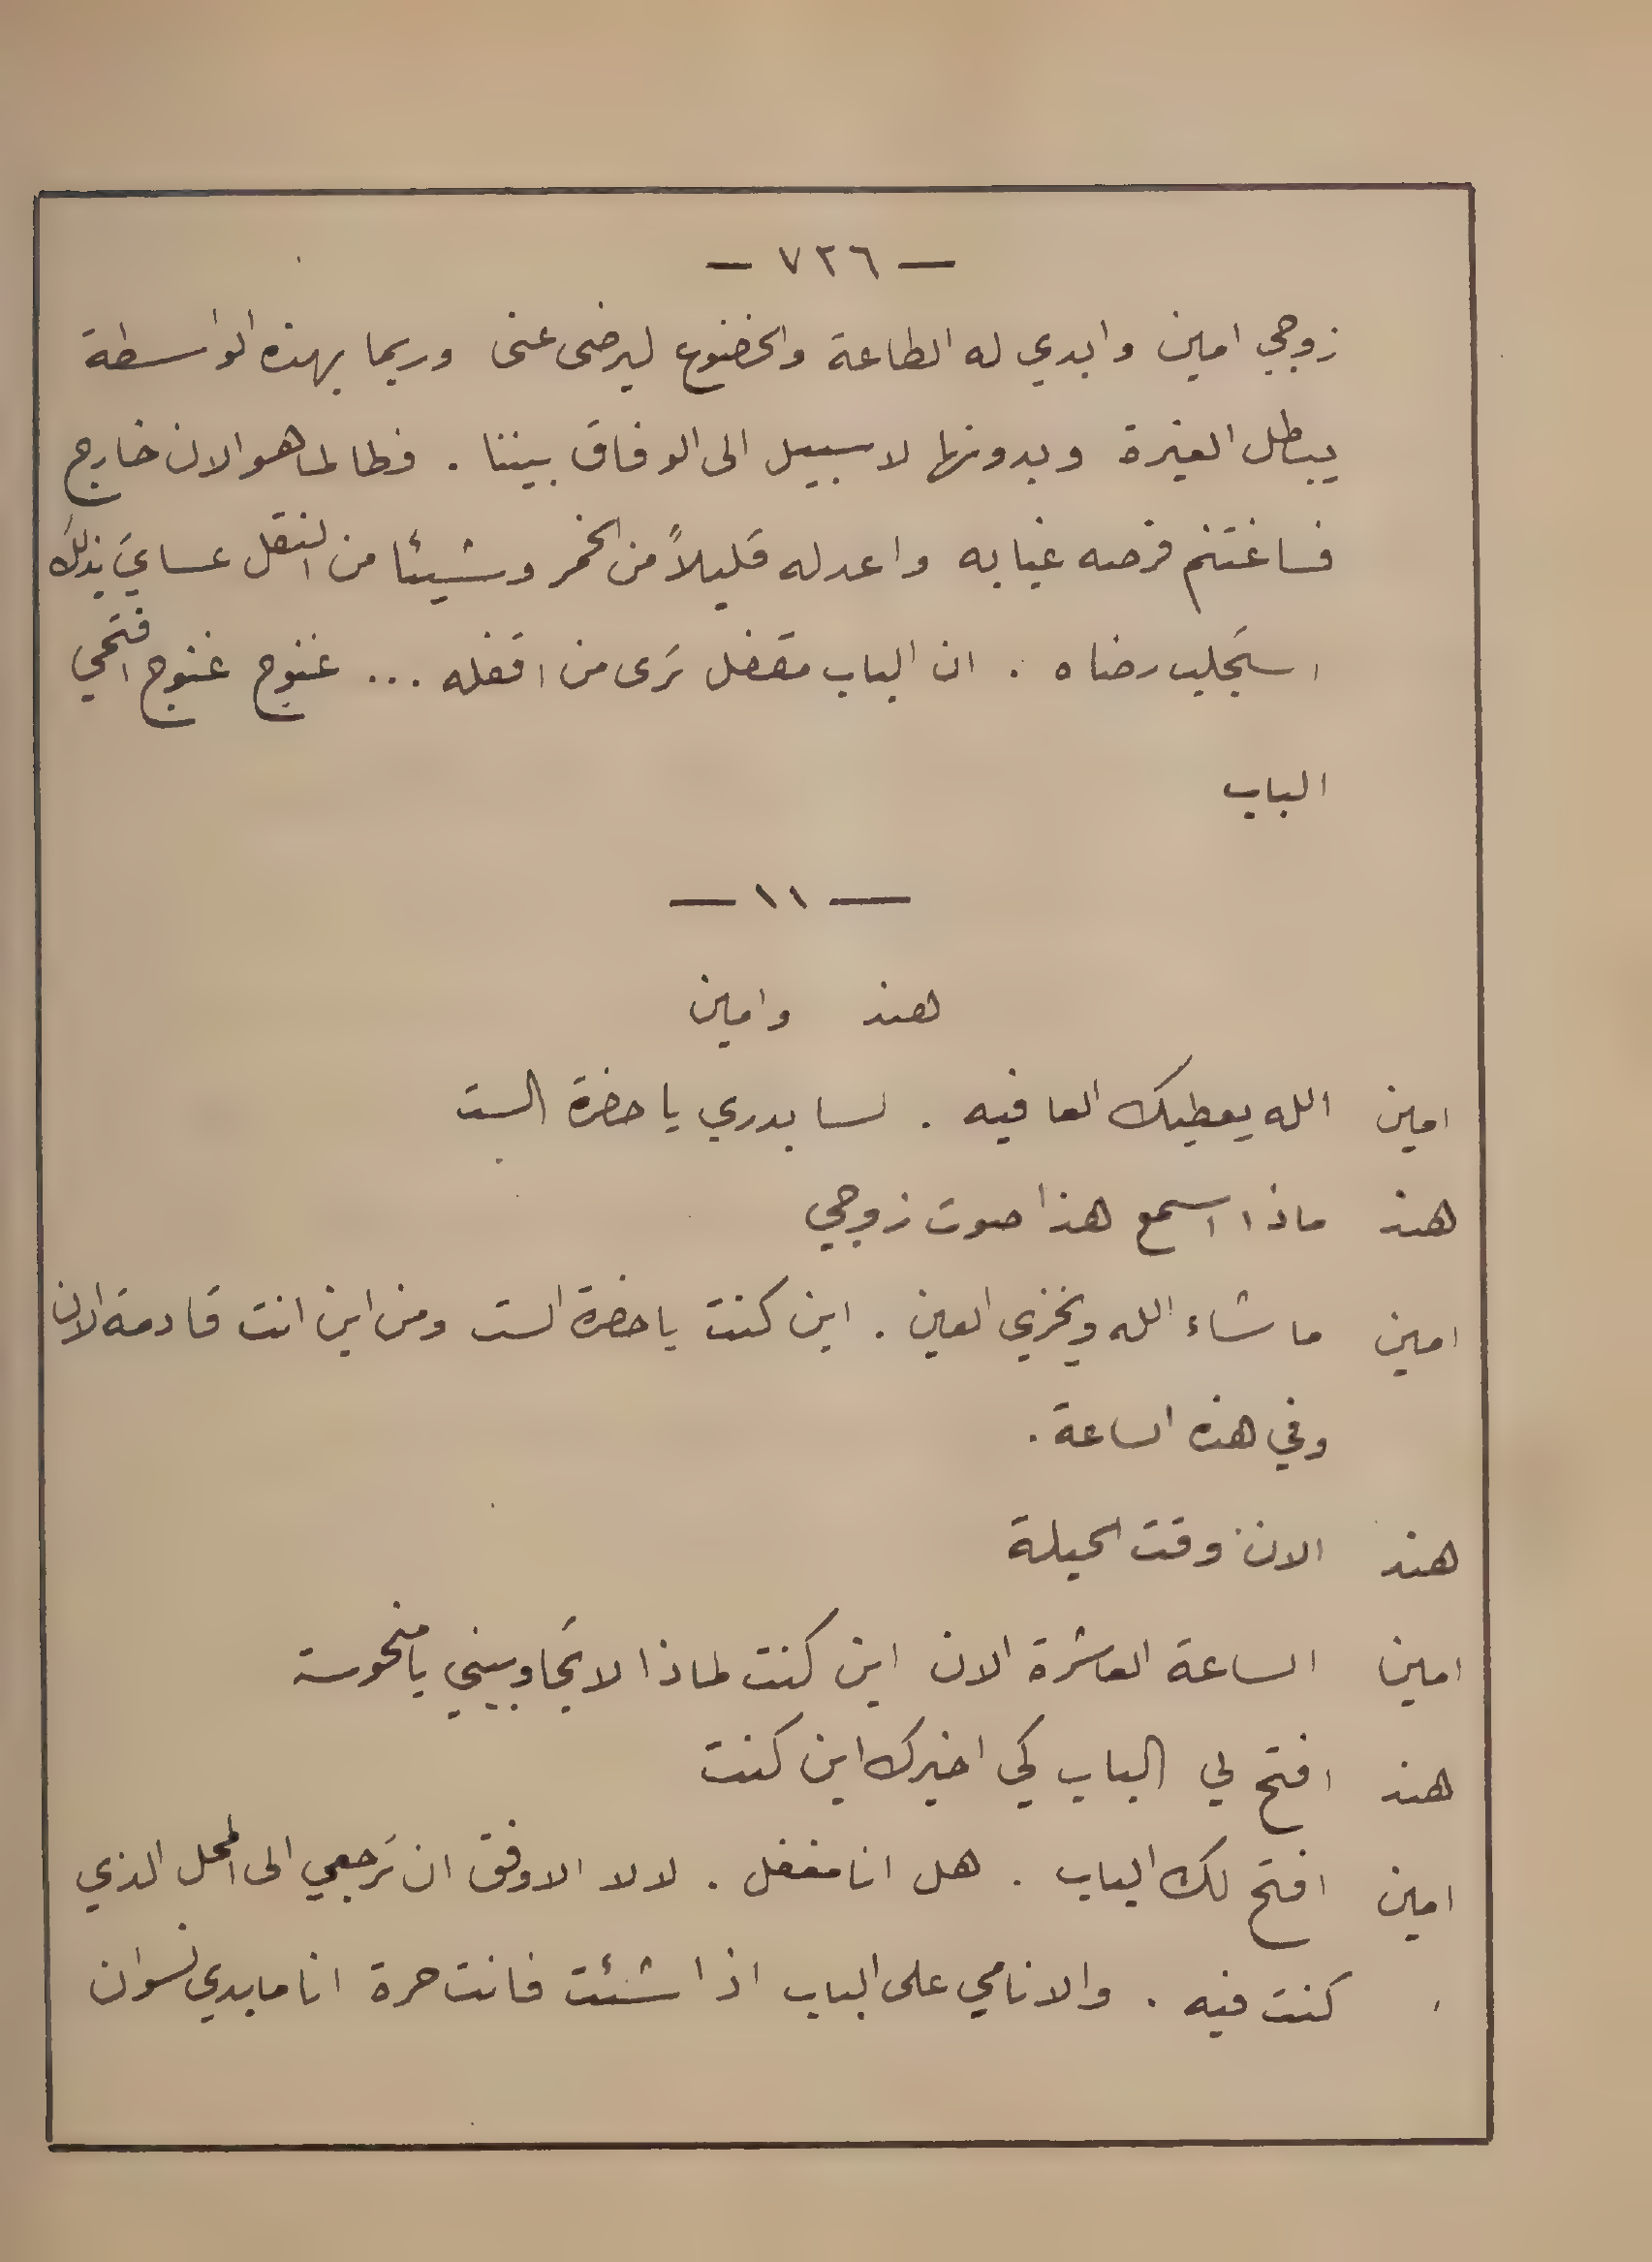 — ٧٢٦ —
زوجي امين وابدي له الطاعة والخضوع ليرضى عنى وربما بهذه الواسطة
يبطل الغيرة وبدونها لا سبيل الى الوفاق بيننا . فطالما هو الان خارج
فساغتنم فرصه غيابه واعد له قليلاً من الخمر وشيئا من النقل عسايَ بذلك
استجلب رضاه . ان الباب مقفل تَرى من اقفله ... غنوج غنوج افتحي
الباب
— ١١ —
هند وامين
امين الله يعطيك العافيه . لسا بدري يا حضرة الست
هند ماذا اسمع هذا صوت زوجي
امين ما شاء الله ويخزي العين . اين كنت يا حضرة الست ومن اين انت قادمة الان
وفي هذه الساعة .
هند الان وقت الحيلة
امين الساعة العاشرة الان اين كنت لماذا لا تجاوبيني يا منحوسة
هند افتح لي الباب كي اخبرك اين كنت
امين افتح لك الباب . هل انا مغفل . لا لا الاوفق ان تَرجعي الى المحل الذي
كنت فيه . والا نامي على الباب اذا شئت فانت حرة انا ما بدي نسوان